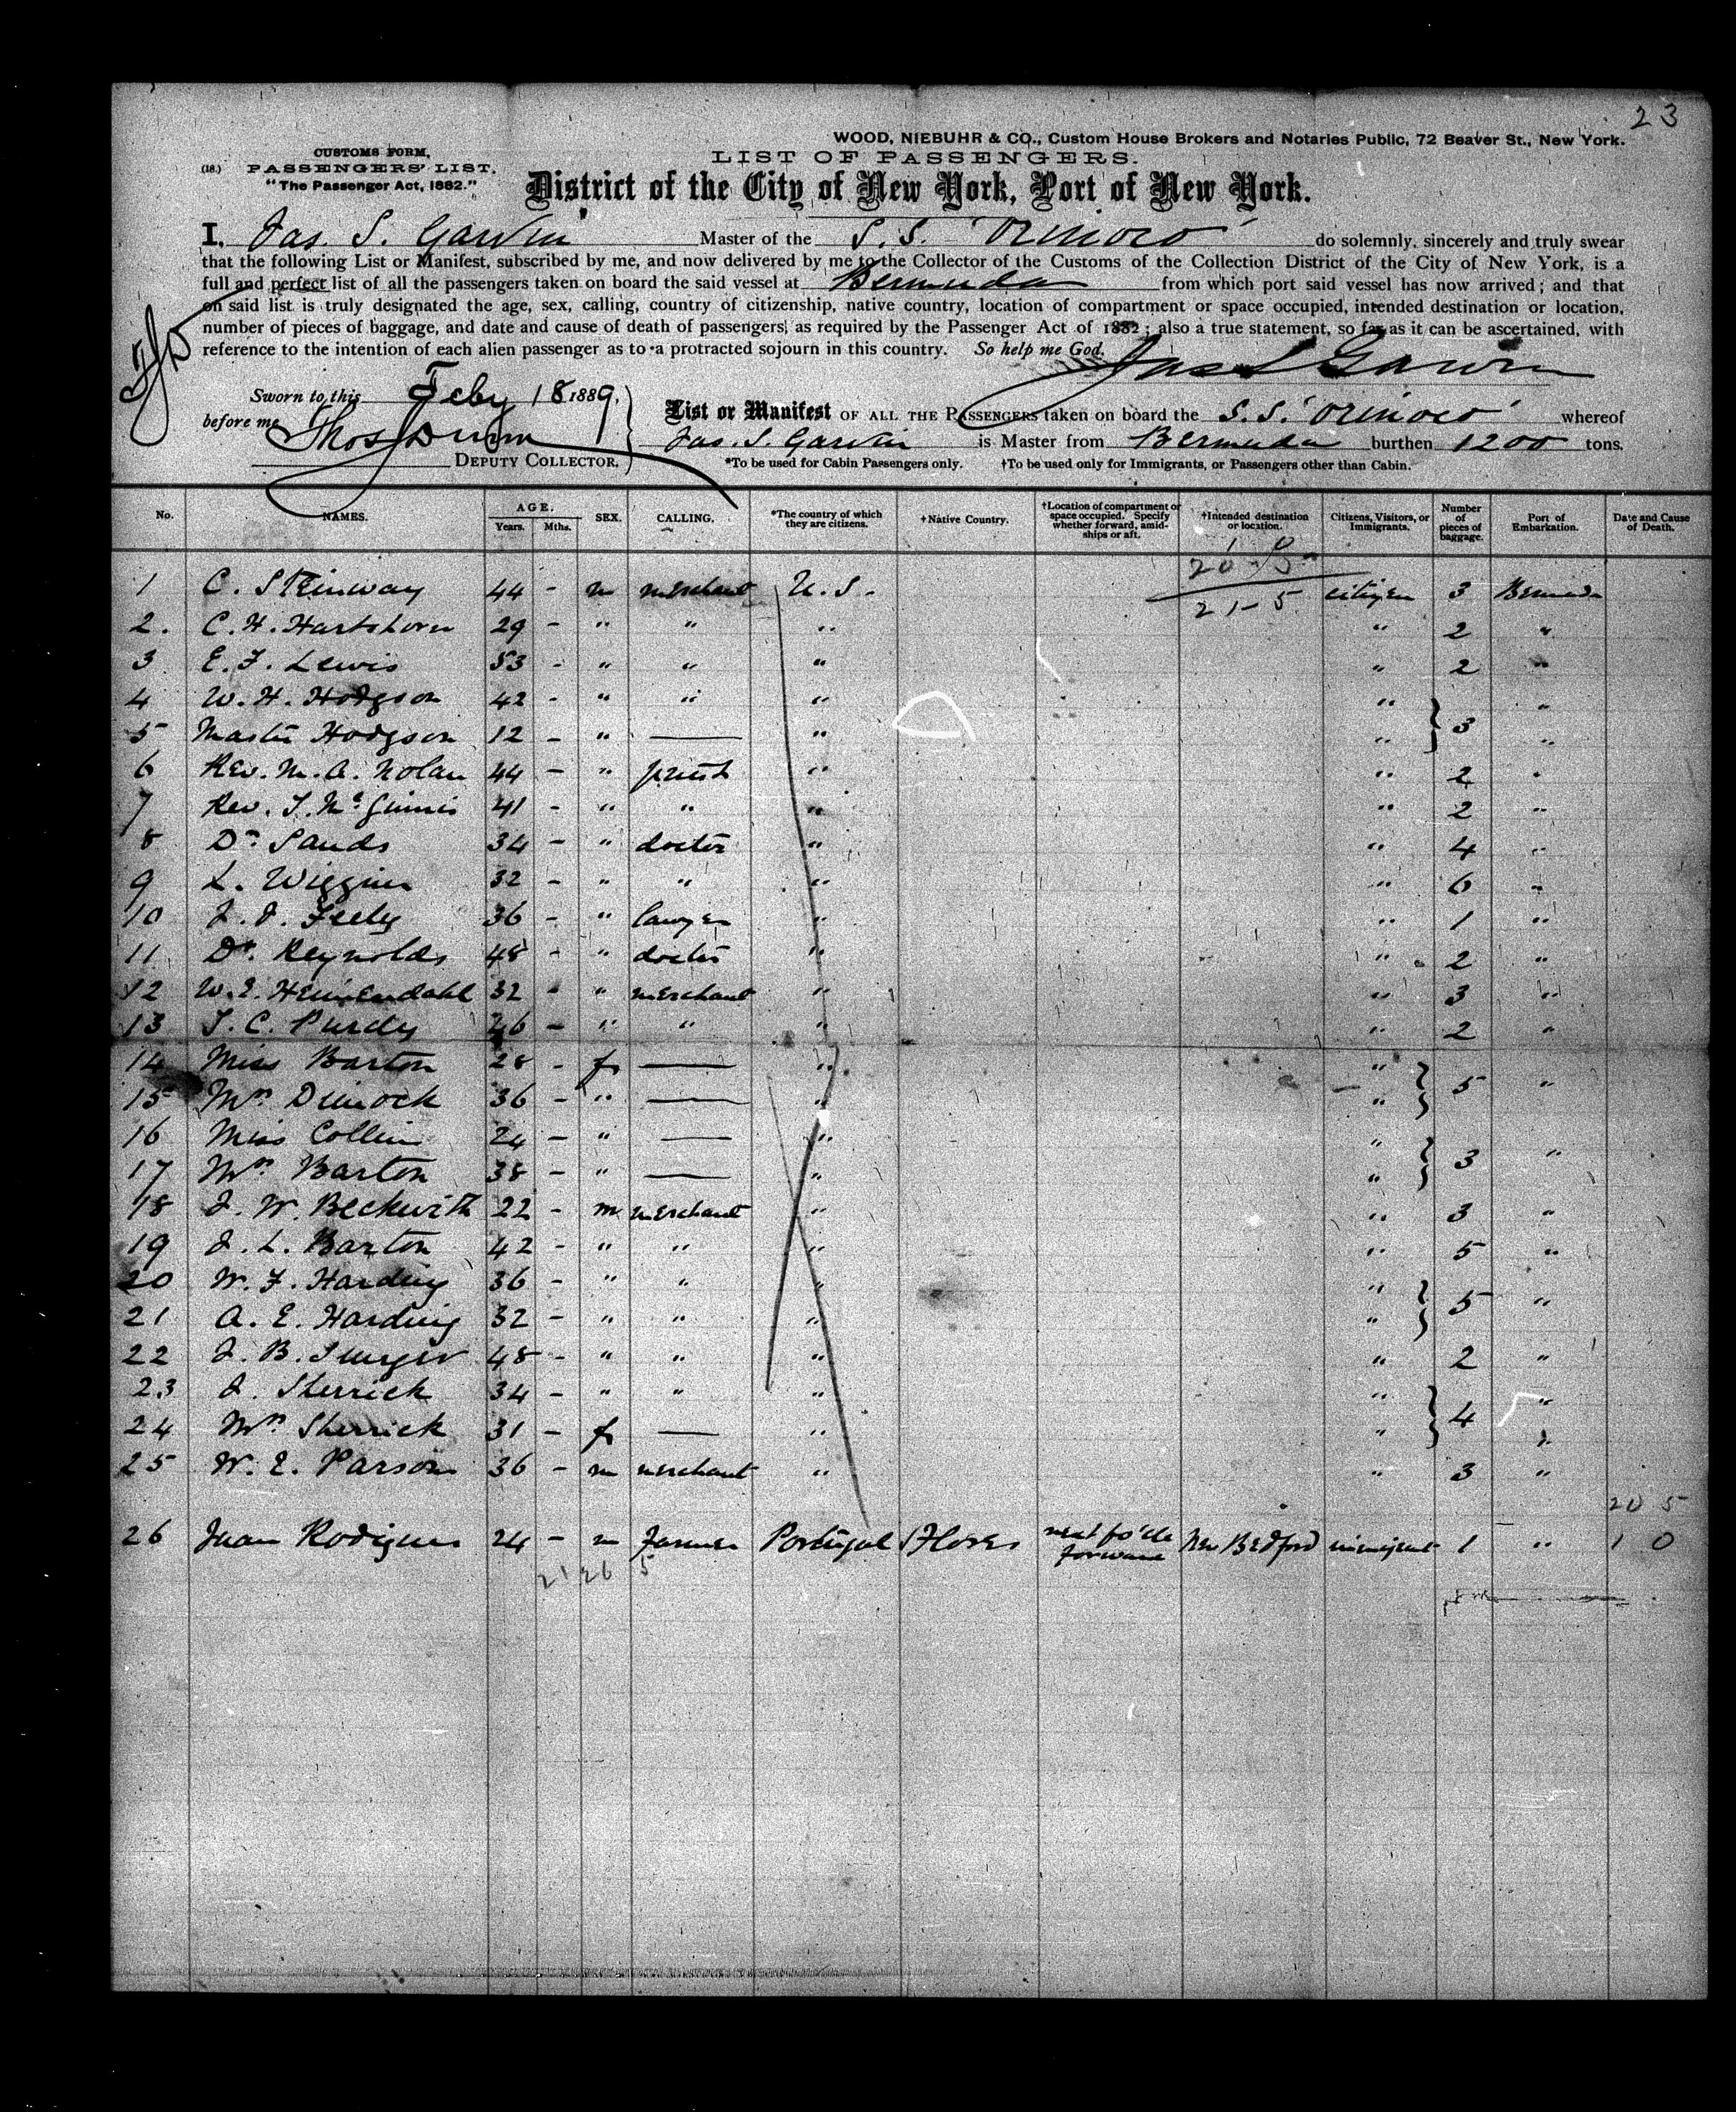 23
WOOD, NIEBUHR & CO., Custom House Brokers and Notaries Public, 72 Beaver St., New York.
CUSTOMS FORM,
(18.) PASSENGERS' LIST.
"The Passenger Act, 1882."
LIST OF PASSENGERS.
District of the City of New York, Port of New York.
I, Jas. S. Garvin Master of the S.S. 'Orinoco' do solemnly, sincerely and truly swear
that the following List or Manifest, subscribed by me, and now delivered by me to the Collector of the Customs of the Collection District of the City of New York, is a
full and perfect list of all the passengers taken on board the said vessel at Bermuda from which port said vessel has now arrived; and that
on said list is truly designated the age, sex, calling, country of citizenship, native country, location of compartment or space occupied, intended destination or location,
number of pieces of baggage, and date and cause of death of passengers, as required by the Passenger Act of 1882; also a true statement, so far as it can be ascertained, with
reference to the intention of each alien passenger as to a protracted sojourn in this country. So help me God.
Jas S Garvin
Sworn to this Feby 18 1889.
before me
DEPUTY COLLECTOR.
List or Manifest OF ALL THE PASSENGERS taken on board the S.S. 'Orinoco' whereof
Jas. S. Garvin is Master from Bermuda burthen 1200 tons.
*To be used for Cabin Passengers only. †To be used only for Immigrants, or Passengers other than Cabin.
No. NAMES. AGE. Years. Mths. SEX. CALLING. *The country of which they are citizens. †Native Country. †Location of compartment or space occupied. Specify whether forward, amidships or aft. †Intended destination or location. Citizens, Visitors, or Immigrants. Number of pieces of baggage. Port of Embarkation. Date and Cause of Death.
1 C. Steinway 44 - m merchant U.S. 21-5 citizen 3 Bermuda
2. C. H. Hartshorn 29 - " " " " 2 "
3 E. F. Lewis 53 - " " " " 2 "
4 W. H. Hodgson 42 - " " " " } 3 "
5 Master Hodgson 12 - " — " " "
6 Rev. M. A. Nolan 44 - " priest " " 2 "
7 Rev. T. McGinnis 41 - " " " " 2 "
8 Dr. Sands 34 - " doctor " " 4 "
9 L. Wiggin 32 - " " " " 6 "
10 J. J. Feely 36 - " lawyer " " 1 "
11 Dr. Reynolds 48 - " doctor " " 2 "
12 W. E. Heimendahl 32 - " merchant " " 3 "
13 T. C. Purdy 26 - " " " " 2 "
14 Miss Barton 28 - f — " " } 5 "
15 Mrs Dimock 36 - " — " "
16 Miss Collins 24 - " — " " } 3 "
17 Mrs Barton 38 - " — " "
18 J. W. Beckwith 22 - m merchant " " 3 "
19 J. L. Barton 42 - " " " " 5 "
20 W. F. Harding 36 - " " " " } 5 "
21 A. E. Harding 32 - " " " "
22 J. B. 48 - " " " " 2 "
23 J. Sherrick 34 - " " " " } 4 "
24 Mrs Sherrick 31 - f — " " "
25 W. E. Parsons 36 - m merchant " " 3 "
20 5
26 Juan Rodigues 24 - m Farmer Portugal Flores next fo'cle forward New Bedford immigrant 1 " 1 0
21 26 5